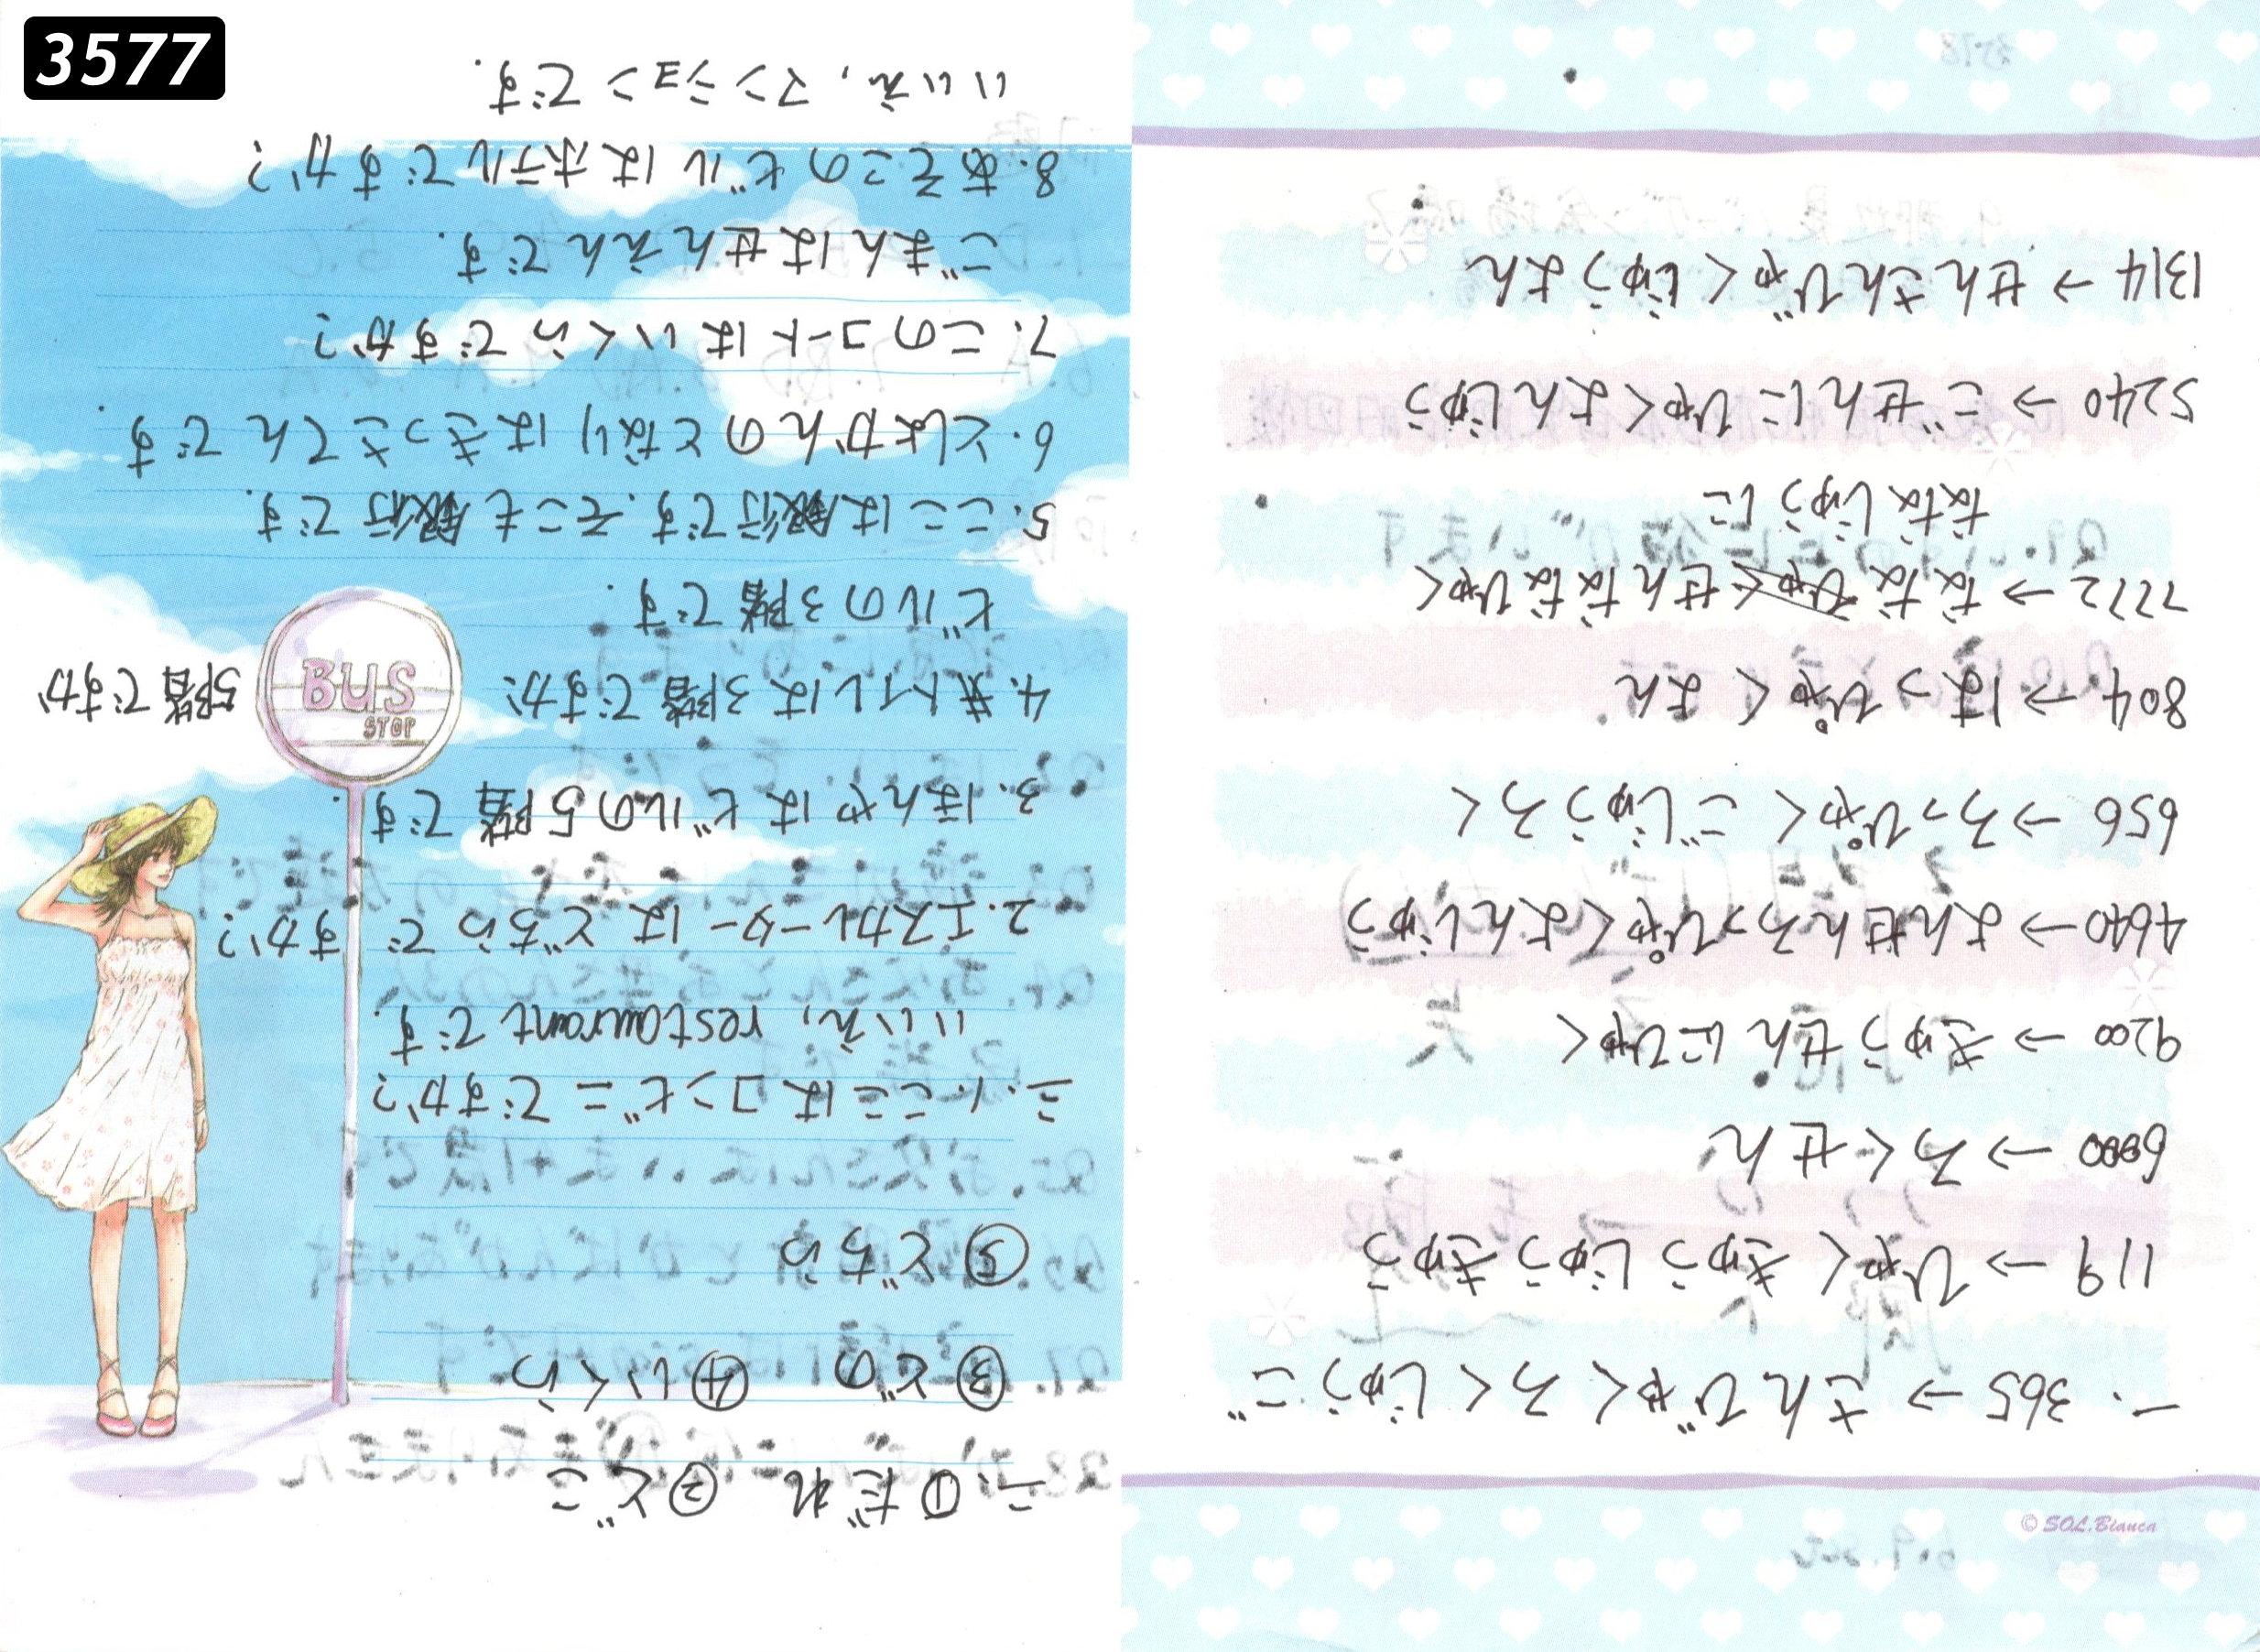 3577
一. 365 → さんびゃくろくじゅうご
119 → ひゃくきゅうじゅうきゅう
6000 → ろくせん
9200 → きゅうせんにひゃく
4640 → よんせんろっぴゃくよんじゅう
656 → ろっぴゃくごじゅうろく
804 → はっぴゃくよん
7772 → ななせんななひゃく
ななじゅうに
5240 → ごせんにひゃくよんじゅう
1314 → せんさんびゃくじゅうよん
© SOL.Bianca
二.①だれ ②どこ
③どの ④いくら
⑤どちら
三.1.ここはコンビニですか?
いいえ, restaurantです.
2.エスカレーターはどちらですか?
3.ほんやはビルの5階です.
4.トイレは3階ですか 5階ですか
ビルの3階です.
5.ここは銀行です.そこも銀行です.
6.としょかんのとなりはきっさてんです.
7.このコートはいくらですか?
ごまんはせんえんです.
8.あそこのビルはホテルですか?
いいえ,マンションです.
BUS
STOP